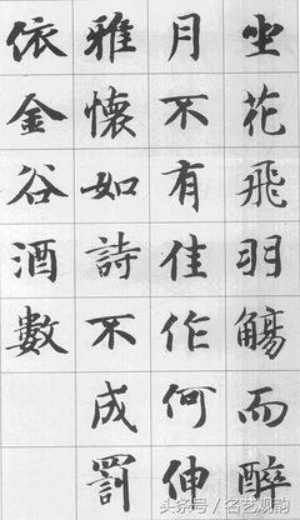 坐花飛羽觴而醉
月不有佳作何伸
雅懷如詩不成罰
依金谷酒數
头条号／名艺观韵